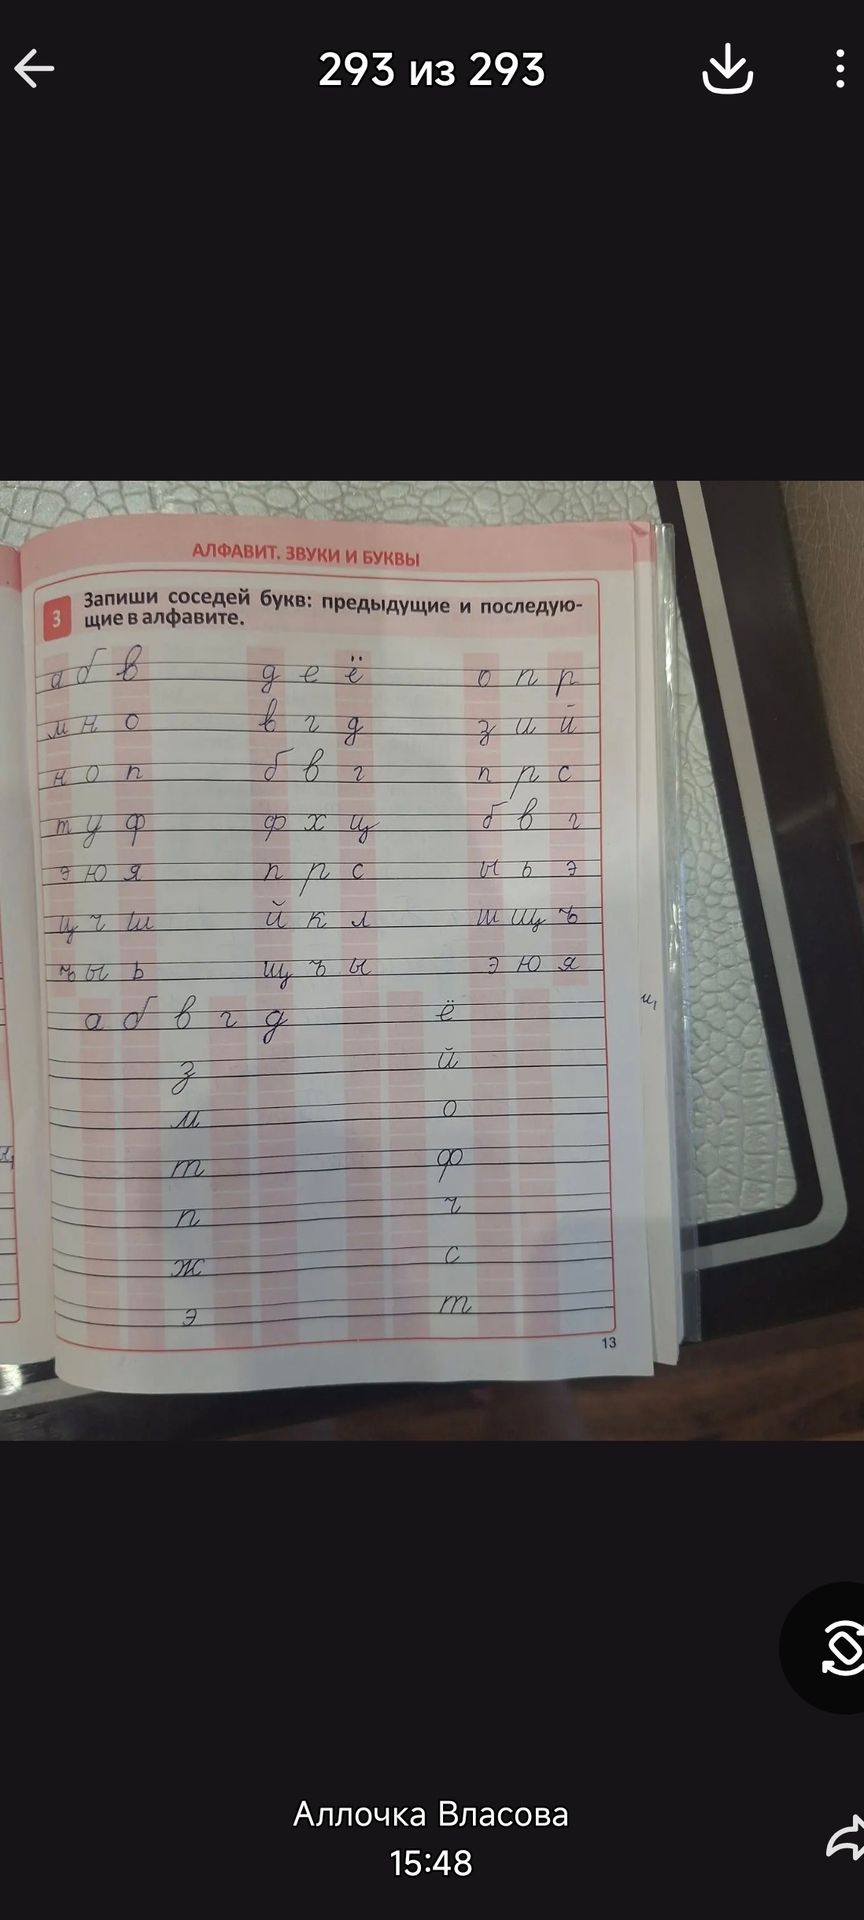 293 из 293
АЛФАВИТ. ЗВУКИ И БУКВЫ
3 Запиши соседей букв: предыдущие и последую-
щие в алфавите.
а б в д е ё о п р
м н о в г д з и й
н о п б в г п р с
т у ф ф х ц б в г
э ю я п р с ы ь э
ц ч ш й к л ш щ ъ
ъ ы ь щ ъ ы э ю я
а б в г д ё
з й
м о
т ф
п ч
ж с
э т
13
Аллочка Власова
15:48